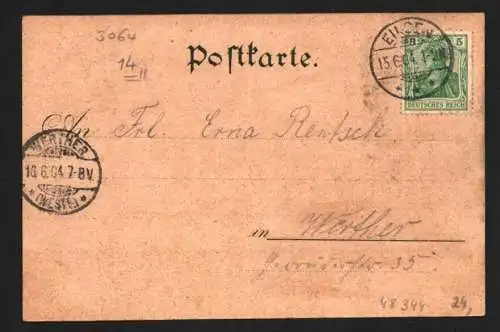 3064
14 II
Postkarte.
EILSEN
15.6.04. 7-8
5
DEUTSCHES REICH
An Frl. Erna Rentsch
WERTHER
16.6.04.7-8V.
* (WESTF.) *
in Werther
35.
48344 24,